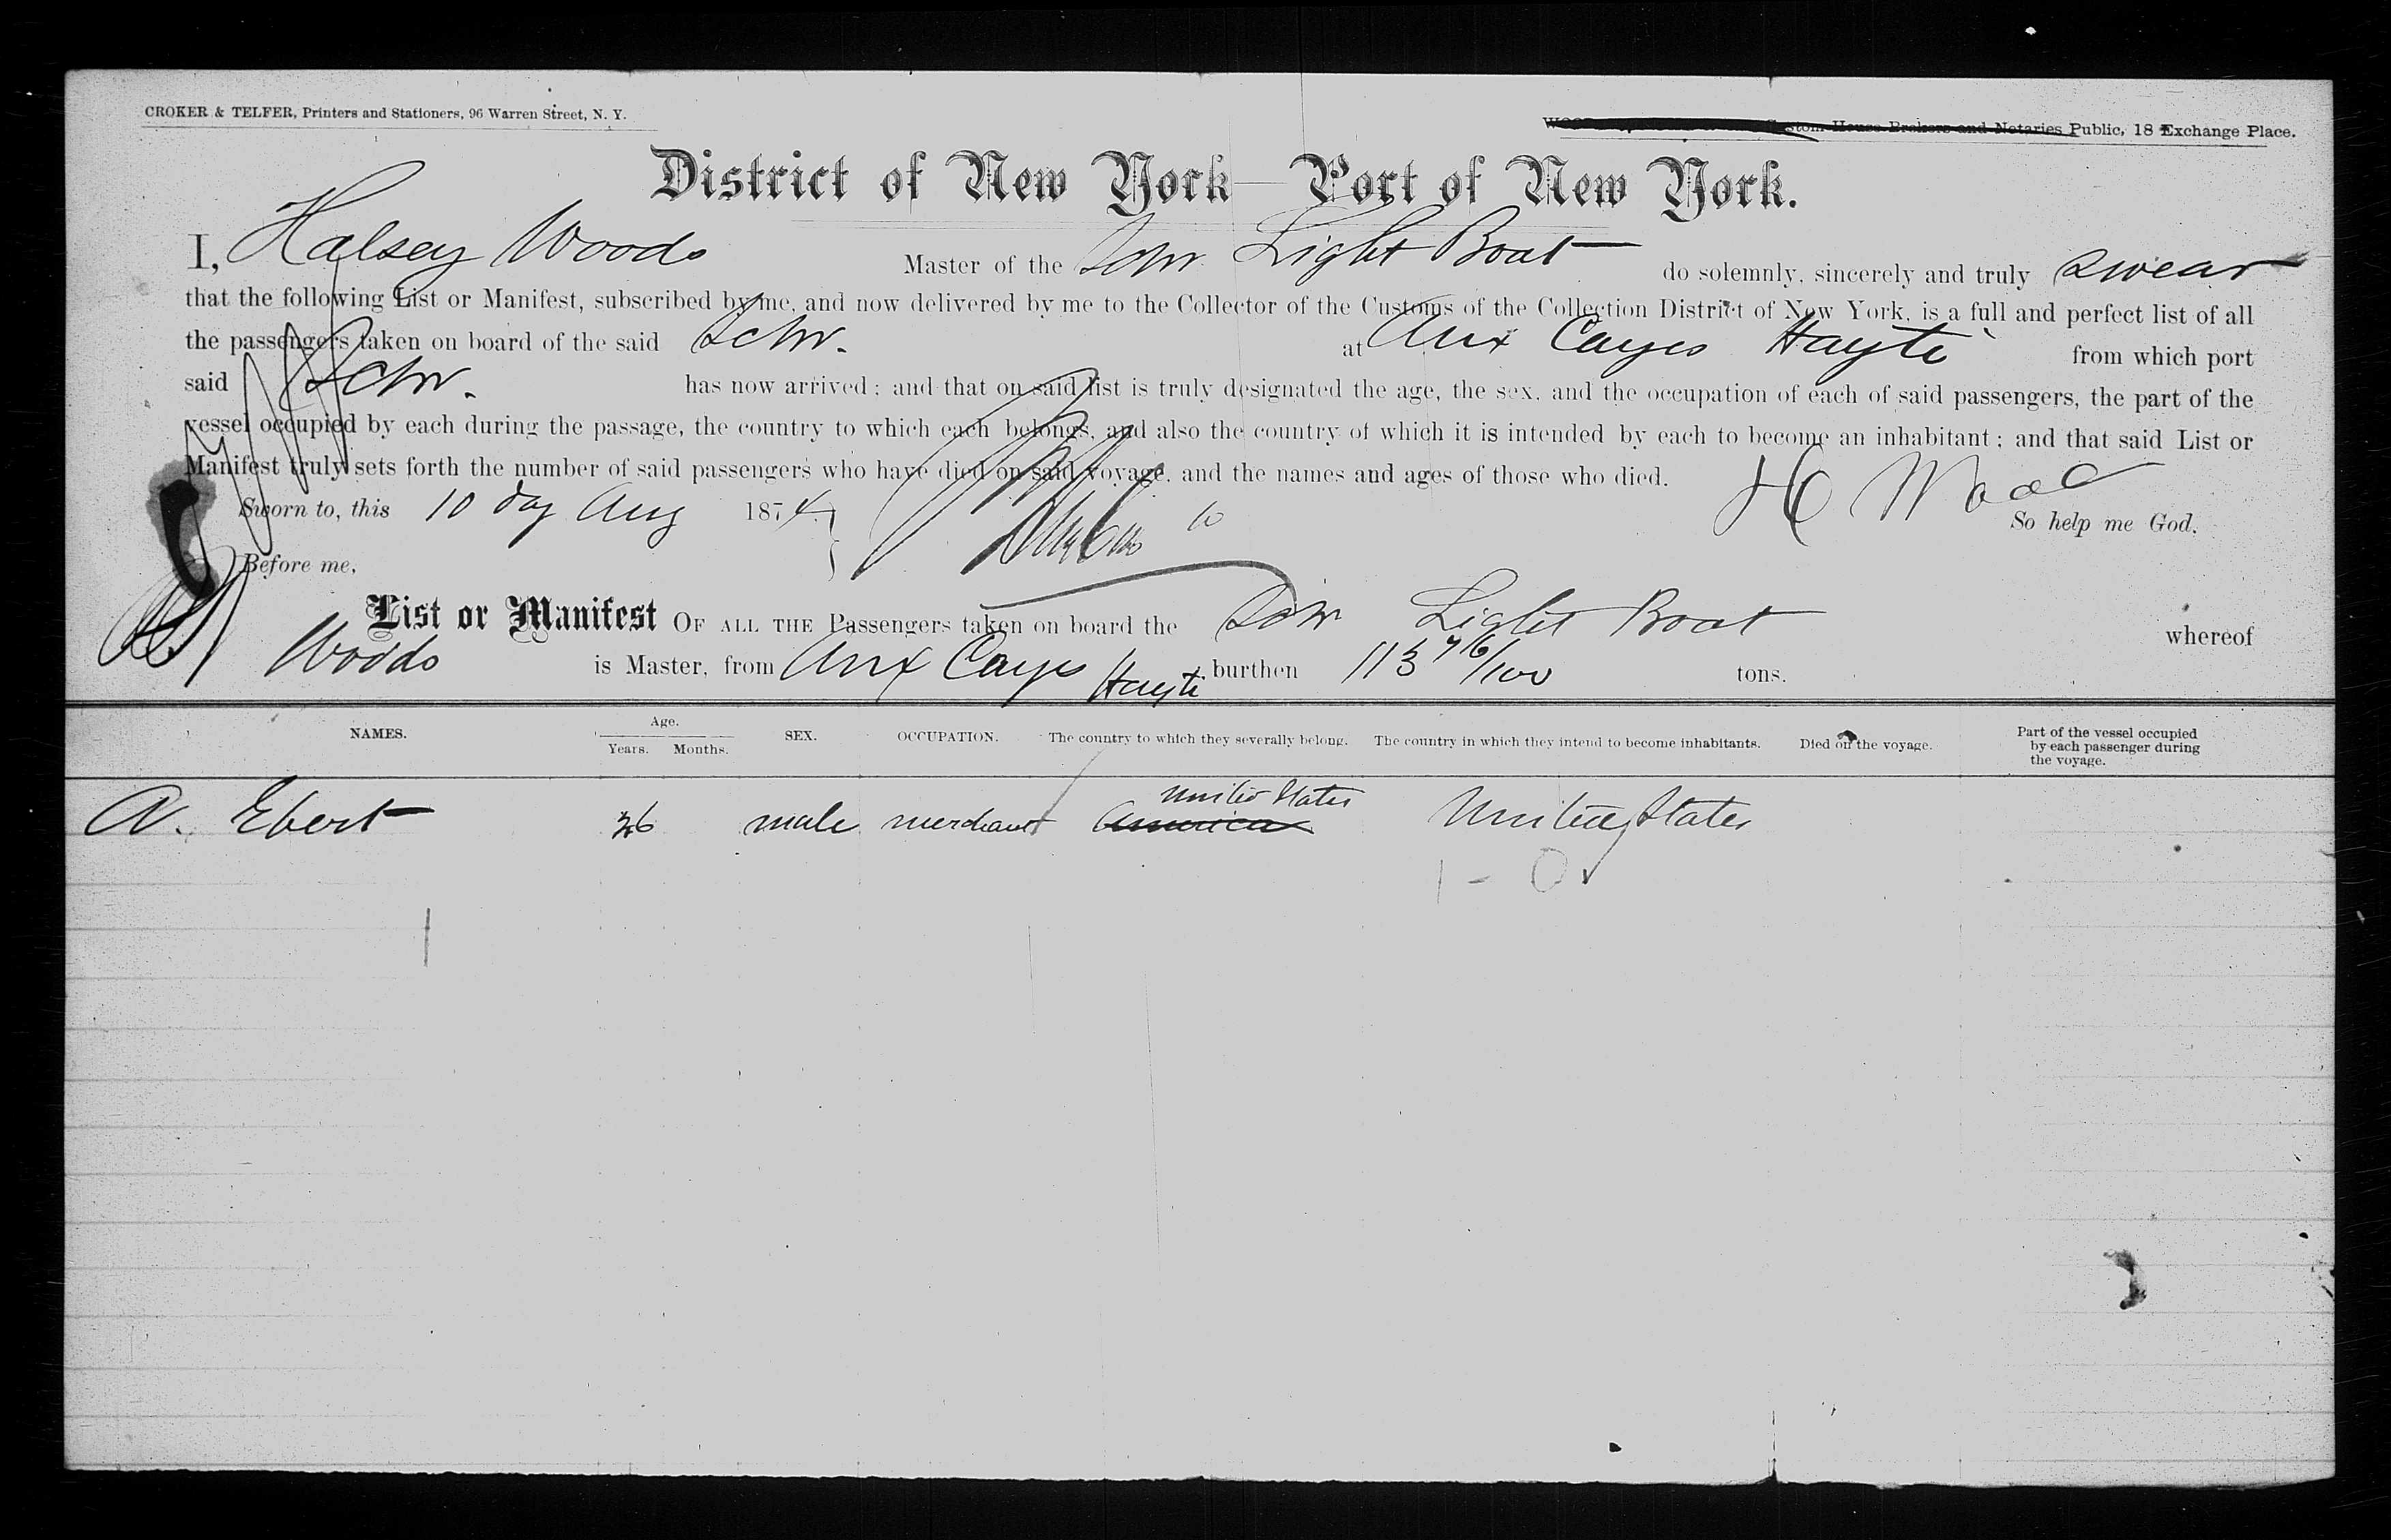 CROKER & TELFER, Printers and Stationers, 96 Warren Street, N. Y.
Custom House Brokers and Notaries Public, 18 Exchange Place.
District of New York—Port of New York.
I, Halsey Woods Master of the Schr Light Boat do solemnly, sincerely and truly swear
that the following List or Manifest, subscribed by me, and now delivered by me to the Collector of the Customs of the Collection District of New York, is a full and perfect list of all
the passengers taken on board of the said Schr. at Aux Cayes Hayti from which port
said Schr. has now arrived; and that on said list is truly designated the age, the sex, and the occupation of each of said passengers, the part of the
vessel occupied by each during the passage, the country to which each belongs, and also the country of which it is intended by each to become an inhabitant; and that said List or
Manifest truly sets forth the number of said passengers who have died on said voyage, and the names and ages of those who died.
Sworn to, this 10 day Aug 1874. H Woods So help me God.
Before me,
List or Manifest OF ALL THE Passengers taken on board the Schr Light Boat whereof
Woods is Master, from Aux Cayes Hayti burthen 113 76/100 tons.
NAMES. Age. Years. Months. SEX. OCCUPATION. The country to which they severally belong. The country in which they intend to become inhabitants. Died on the voyage. Part of the vessel occupied by each passenger during the voyage.
A. Ebert 36 male merchant America United States United States
1 - 0
1